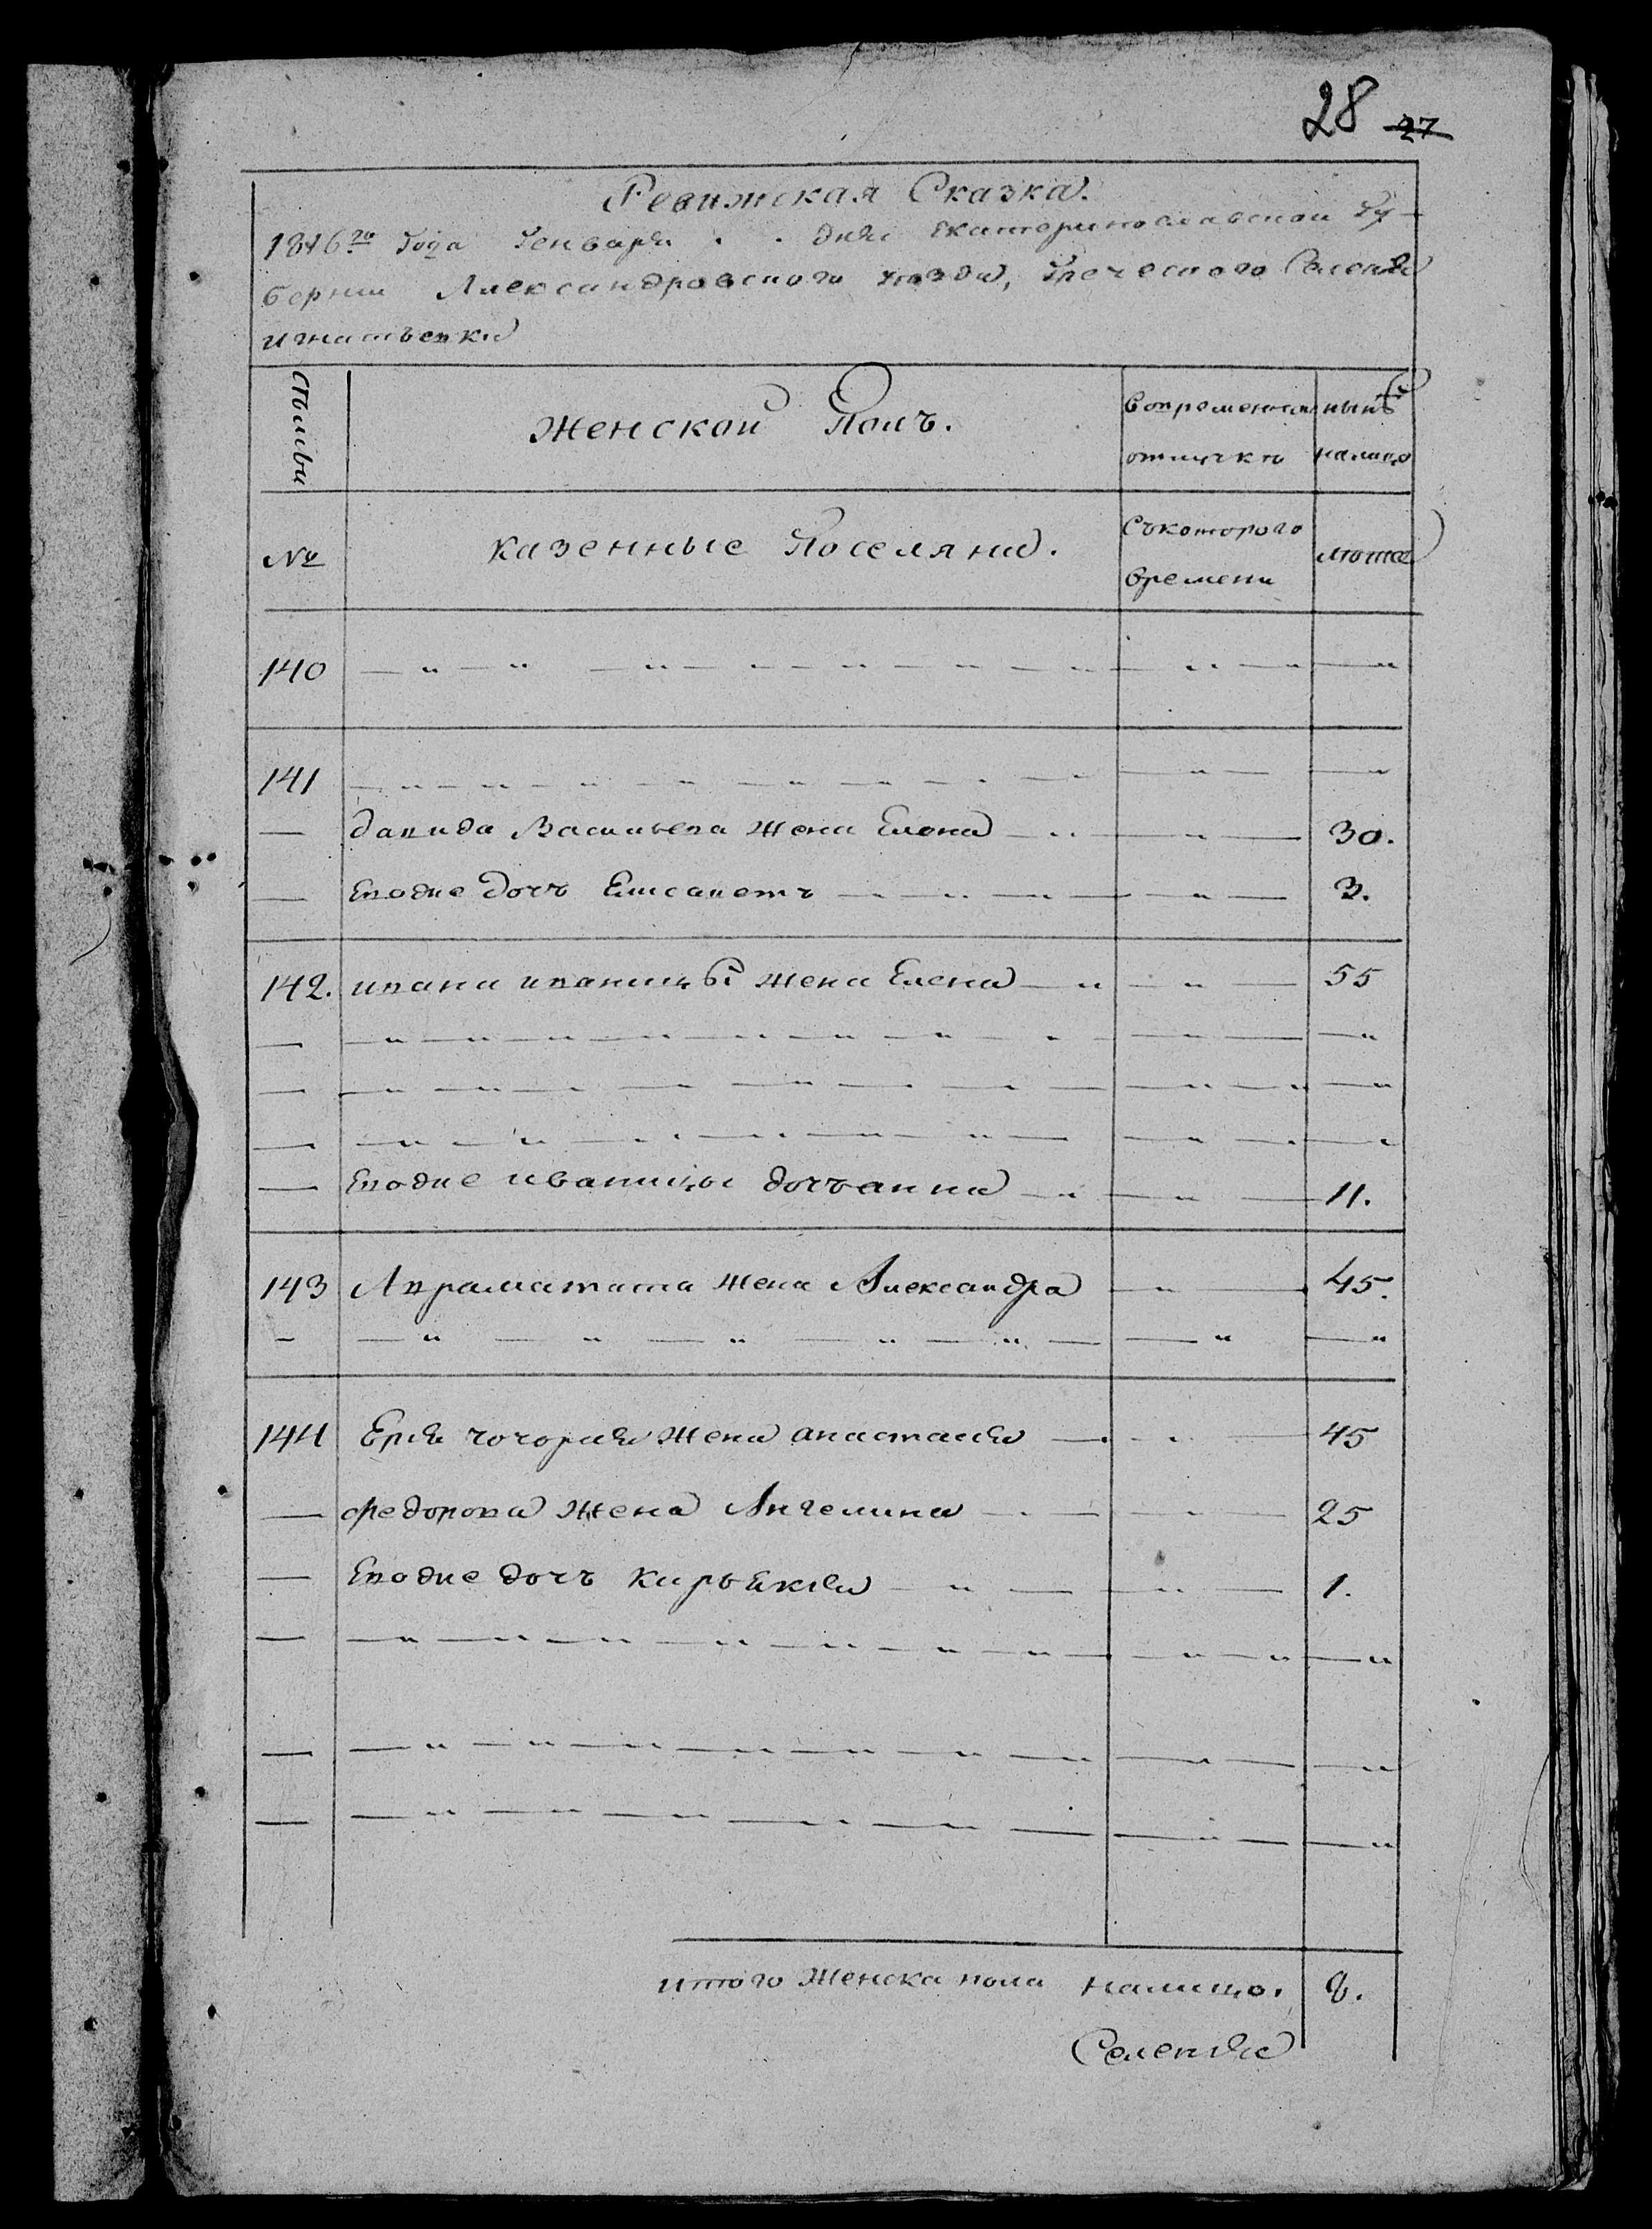 28 27
Ревижская Сказка.
1816го Года Генваря . . дня Екатеринославской Гу-
бернии Александровского уезда, Греческого Селения
игнатьевки
Семьи
Женской Полъ.
вовременной
отлучкъ
нынѣ
налицо
№
казенные Поселяне.
Съкоторого
времени
лета
140 — " — " — " — " — "
141 — " — " — " — " — "
— давида Васильева жена Елена — " — 30.
— Еводие дочь Елисаветъ — " — 3.
142. ивана иваницы жена Елена — " — 55
— — " — " — " — " — "
— — " — " — " — " — "
— — " — " — " — " — "
— Еводие иваницы дочь анна — " — 11.
143 Авраматата жена Александра — " — 45.
- — " — " — " — " — "
144 жена анастасия — " — 45
— федорова жена Ангелина — " — 25
— Еводие дочь Кирьякия — " — 1.
— — " — " — " — " — "
— — " — " — " — " — "
— — " — " — " — " — "
итого Женска пола налицо. 8.
Селения